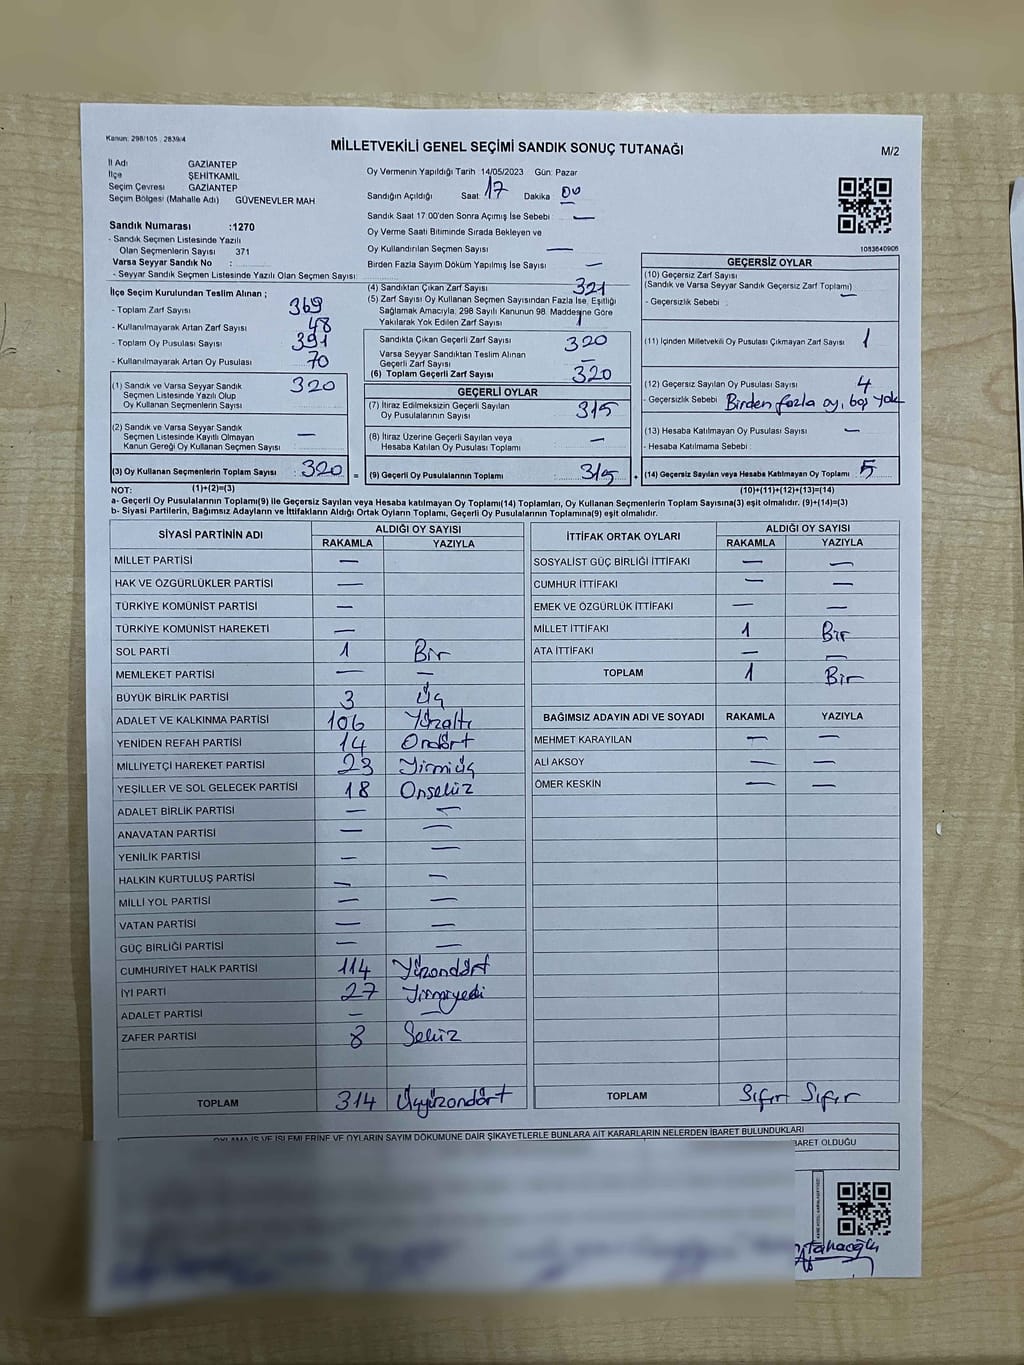 Kanun: 298/105 , 2839/4
MİLLETVEKİLİ GENEL SEÇİMİ SANDIK SONUÇ TUTANAĞI
M/2
İl Adı GAZİANTEP
İlçe ŞEHİTKAMİL
Seçim Çevresi GAZİANTEP
Seçim Bölgesi (Mahalle Adı) GÜVENEVLER MAH
Sandık Numarası :1270
- Sandık Seçmen Listesinde Yazılı
Olan Seçmenlerin Sayısı 371
Varsa Seyyar Sandık No :
- Seyyar Sandık Seçmen Listesinde Yazılı Olan Seçmen Sayısı:
Oy Vermenin Yapıldığı Tarih 14/05/2023 Gün: Pazar
Sandığın Açıldığı Saat 17 Dakika 00
Sandık Saat 17.00'den Sonra Açılmış İse Sebebi : —
Oy Verme Saati Bitiminde Sırada Bekleyen ve
Oy Kullandırılan Seçmen Sayısı —
Birden Fazla Sayım Döküm Yapılmış İse Sayısı —
1083640906
İlçe Seçim Kurulundan Teslim Alınan ;
- Toplam Zarf Sayısı : 369
- Kullanılmayarak Artan Zarf Sayısı : 48
- Toplam Oy Pusulası Sayısı : 391
- Kullanılmayarak Artan Oy Pusulası : 70
(1) Sandık ve Varsa Seyyar Sandık : 320
Seçmen Listesinde Yazılı Olup
Oy Kullanan Seçmenlerin Sayısı
(2) Sandık ve Varsa Seyyar Sandık
Seçmen Listesinde Kayıtlı Olmayan : —
Kanun Gereği Oy Kullanan Seçmen Sayısı
(3) Oy Kullanan Seçmenlerin Toplam Sayısı : 320
(1)+(2)=(3)
(4) Sandıktan Çıkan Zarf Sayısı : 321
(5) Zarf Sayısı Oy Kullanan Seçmen Sayısından Fazla İse, Eşitliği
Sağlamak Amacıyla, 298 Sayılı Kanunun 98. Maddesine Göre
Yakılarak Yok Edilen Zarf Sayısı : 1
Sandıkta Çıkan Geçerli Zarf Sayısı : 320
Varsa Seyyar Sandıktan Teslim Alınan
Geçerli Zarf Sayısı : —
(6) Toplam Geçerli Zarf Sayısı : 320
GEÇERLİ OYLAR
(7) İtiraz Edilmeksizin Geçerli Sayılan
Oy Pusulalarının Sayısı : 315
(8) İtiraz Üzerine Geçerli Sayılan veya
Hesaba Katılan Oy Pusulası Toplamı : —
(9) Geçerli Oy Pusulalarının Toplamı : 315
GEÇERSİZ OYLAR
(10) Geçersiz Zarf Sayısı
(Sandık ve Varsa Seyyar Sandık Geçersiz Zarf Toplamı) : —
- Geçersizlik Sebebi :
(11) İçinden Milletvekili Oy Pusulası Çıkmayan Zarf Sayısı : 1
(12) Geçersiz Sayılan Oy Pusulası Sayısı : 4
- Geçersizlik Sebebi : Birden fazla oy, boş yok
(13) Hesaba Katılmayan Oy Pusulası Sayısı : —
- Hesaba Katılmama Sebebi :
(14) Geçersiz Sayılan veya Hesaba Katılmayan Oy Toplamı : 5
(10)+(11)+(12)+(13)=(14)
NOT:
a- Geçerli Oy Pusulalarının Toplamı(9) ile Geçersiz Sayılan veya Hesaba katılmayan Oy Toplamı(14) Toplamları, Oy Kullanan Seçmenlerin Toplam Sayısına(3) eşit olmalıdır. (9)+(14)=(3)
b- Siyasi Partilerin, Bağımsız Adayların ve İttifakların Aldığı Ortak Oyların Toplamı, Geçerli Oy Pusulalarının Toplamına(9) eşit olmalıdır.
SİYASİ PARTİNİN ADI ALDIĞI OY SAYISI
RAKAMLA YAZIYLA
MİLLET PARTİSİ —
HAK VE ÖZGÜRLÜKLER PARTİSİ —
TÜRKİYE KOMÜNİST PARTİSİ —
TÜRKİYE KOMÜNİST HAREKETİ —
SOL PARTİ 1 Bir
MEMLEKET PARTİSİ — —
BÜYÜK BİRLİK PARTİSİ 3 Üç
ADALET VE KALKINMA PARTİSİ 106 Yüzaltı
YENİDEN REFAH PARTİSİ 14 Ondört
MİLLİYETÇİ HAREKET PARTİSİ 23 Yirmiüç
YEŞİLLER VE SOL GELECEK PARTİSİ 18 Onsekiz
ADALET BİRLİK PARTİSİ — —
ANAVATAN PARTİSİ — —
YENİLİK PARTİSİ — —
HALKIN KURTULUŞ PARTİSİ — —
MİLLİ YOL PARTİSİ — —
VATAN PARTİSİ — —
GÜÇ BİRLİĞİ PARTİSİ — —
CUMHURİYET HALK PARTİSİ 114 Yüzondört
İYİ PARTİ 27 Yirmiyedi
ADALET PARTİSİ — —
ZAFER PARTİSİ 8 Sekiz
TOPLAM 314 Üçyüzondört
İTTİFAK ORTAK OYLARI ALDIĞI OY SAYISI
RAKAMLA YAZIYLA
SOSYALİST GÜÇ BİRLİĞİ İTTİFAKI — —
CUMHUR İTTİFAKI — —
EMEK VE ÖZGÜRLÜK İTTİFAKI — —
MİLLET İTTİFAKI 1 Bir
ATA İTTİFAKI — —
TOPLAM 1 Bir
BAĞIMSIZ ADAYIN ADI VE SOYADI RAKAMLA YAZIYLA
MEHMET KARAYILAN — —
ALİ AKSOY — —
ÖMER KESKİN — —
TOPLAM Sıfır Sıfır
OYLAMA İŞ VE İŞLEMLERİNE VE OYLARIN SAYIM DÖKÜMÜNE DAİR ŞİKAYETLERLE BUNLARA AİT KARARLARIN NELERDEN İBARET BULUNDUKLARI
BARET OLDUĞU